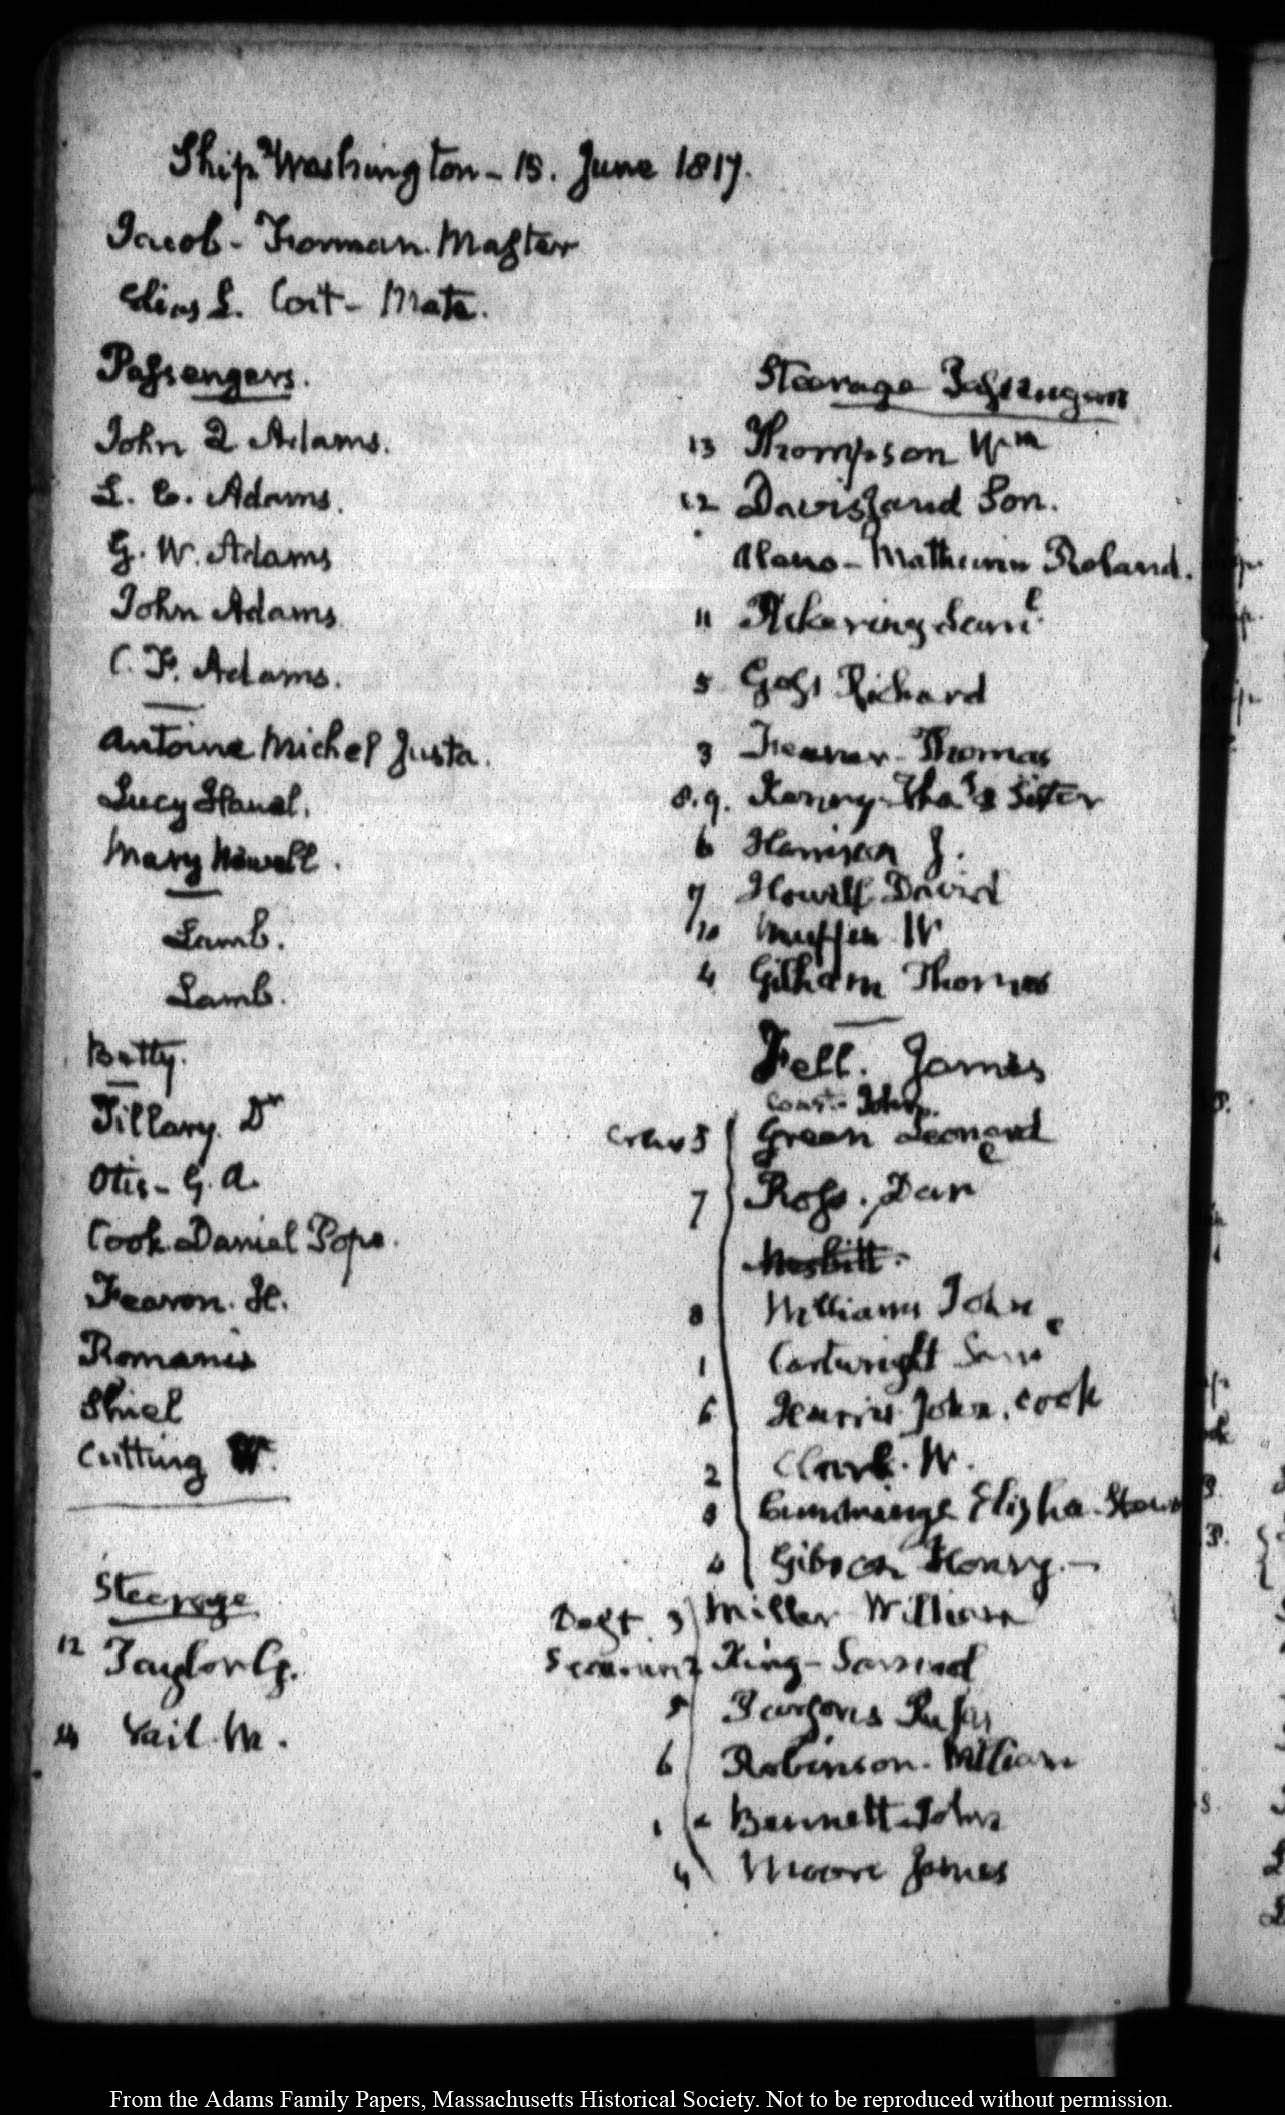 Ship Washington - 15. June 1817.
Jacob - Forman. Master
Elias L. Coit - Mate.
Passengers.
John Q Adams.
L. C. Adams.
G. W. Adams
John Adams
C. F. Adams.
Antoine Michel Giusta.
Lucy
Mary Newell.
Lamb.
Lamb.
Betty.
Tillary. Dr
Otis - G. A.
Cook. Daniel Pope.
Fearon. H.
Romanis
Shiel
Cutting W.
Steerage
12 Taylor G.
14 Vail. M.
Steerage Passengers
13 Thompson Wm
12 Davis and Son.
Mathurin Roland.
11 Pickering Saml
5 Goss Richard
3 Thomas
8. 9. Thos & Sister
6 Harrison J.
7 Howill David
10 W
4 Gilham Thomas
Fell. James
John.
Crew 5 Green Leonard
7 Ross. Danl
Nesbitt.
8 Williams John
1 Cartwright Saml
6 Harris John. Cook
2 Clark. W.
3 Cummings Elisha
4 Gibson Henry. -
Dest. 3 Miller William
Seamen 2 King - Samuel
5 Parsons Rufus
6 Robinson. William
1 Bennett John
4 Moore James
From the Adams Family Papers, Massachusetts Historical Society. Not to be reproduced without permission.